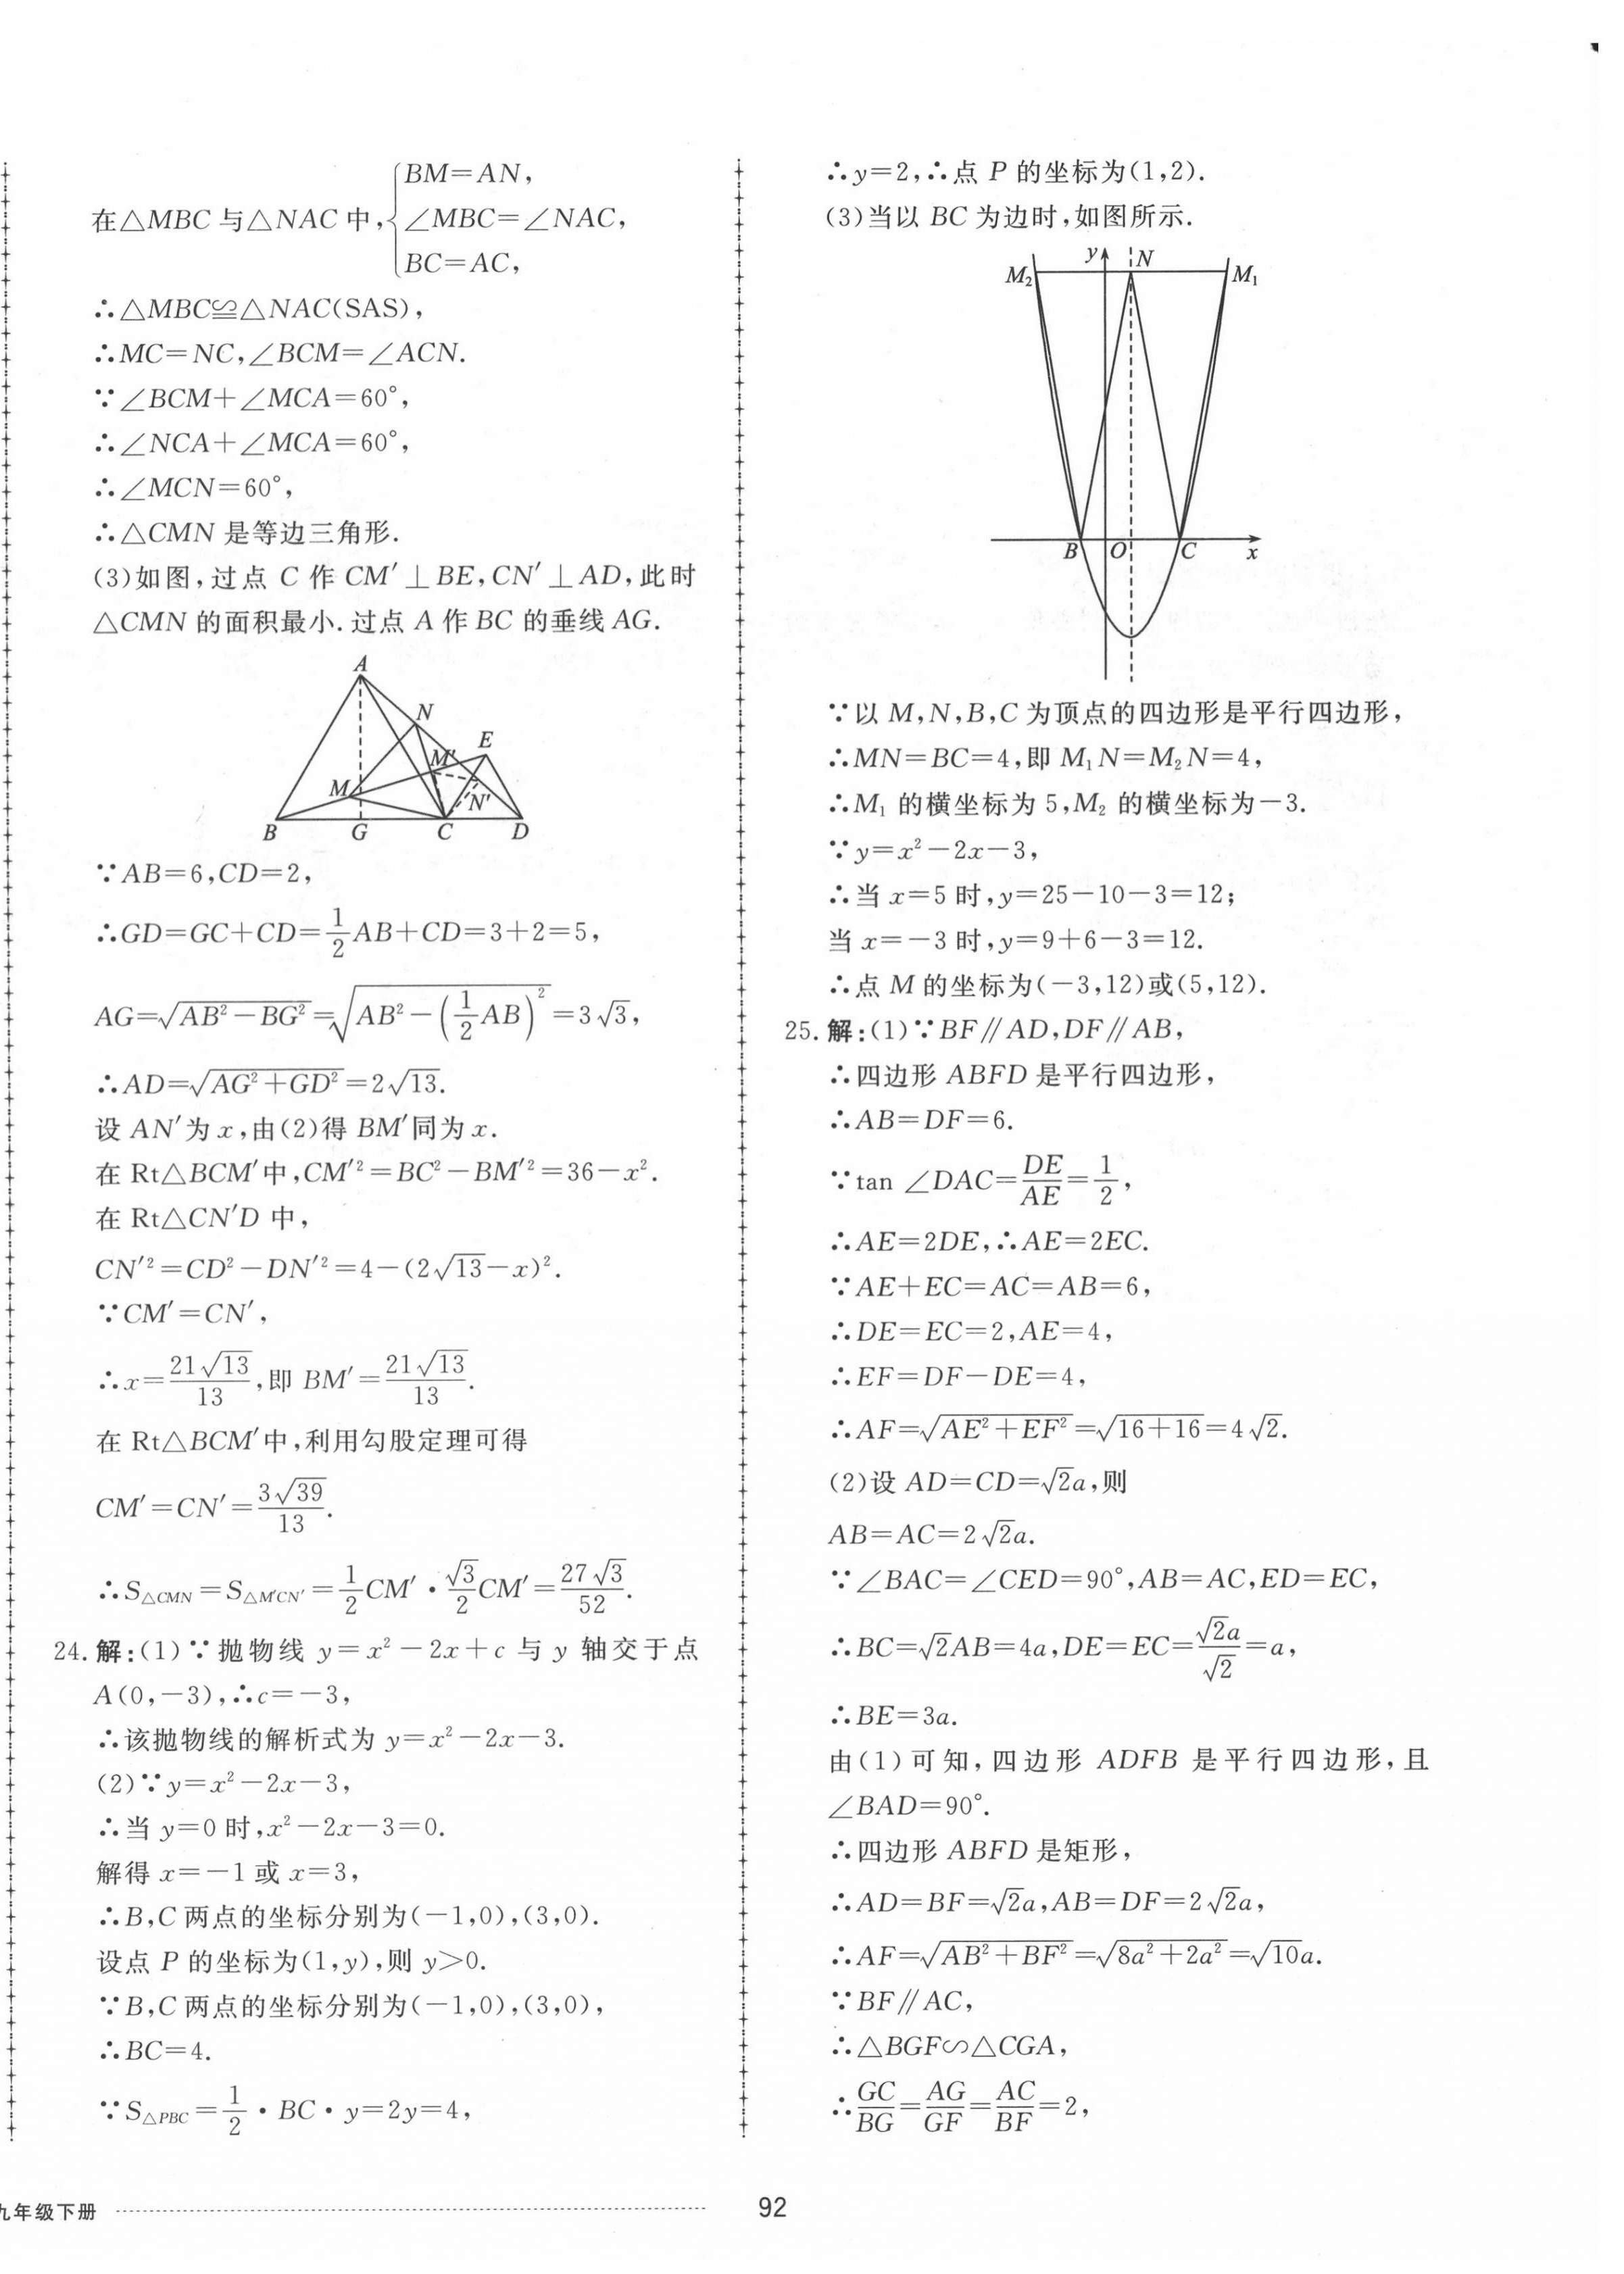 在△MBC与△NAC中,{BM=AN,
∠MBC=∠NAC,
BC=AC,
∴△MBC≌△NAC(SAS),
∴MC=NC,∠BCM=∠ACN.
∵∠BCM+∠MCA=60°,
∴∠NCA+∠MCA=60°,
∴∠MCN=60°,
∴△CMN是等边三角形.
(3)如图,过点C作CM′⊥BE,CN′⊥AD,此时
△CMN的面积最小.过点A作BC的垂线AG.
A
N
E
M′
M
N′
B G C D
∵AB=6,CD=2,
∴GD=GC+CD=\frac{1}{2}AB+CD=3+2=5,
AG=\sqrt{AB²-BG²}=\sqrt{AB²-(\frac{1}{2}AB)²}=3√3,
∴AD=\sqrt{AG²+GD²}=2√13.
设AN′为x,由(2)得BM′同为x.
在Rt△BCM′中,CM′²=BC²-BM′²=36-x².
在Rt△CN′D中,
CN′²=CD²-DN′²=4-(2√13-x)².
∵CM′=CN′,
∴x=\frac{21√13}{13},即BM′=\frac{21√13}{13}.
在Rt△BCM′中,利用勾股定理可得
CM′=CN′=\frac{3√39}{13}.
∴S△CMN=S△M′CN′=\frac{1}{2}CM′·\frac{√3}{2}CM′=\frac{27√3}{52}.
24.解:(1)∵抛物线y=x²-2x+c与y轴交于点
A(0,-3),∴c=-3,
∴该抛物线的解析式为y=x²-2x-3.
(2)∵y=x²-2x-3,
∴当y=0时,x²-2x-3=0.
解得x=-1或x=3,
∴B,C两点的坐标分别为(-1,0),(3,0).
设点P的坐标为(1,y),则y>0.
∵B,C两点的坐标分别为(-1,0),(3,0),
∴BC=4.
∵S△PBC=\frac{1}{2}·BC·y=2y=4,
∴y=2,∴点P的坐标为(1,2).
(3)当以BC为边时,如图所示.
y N
M₂ M₁
B O C x
∵以M,N,B,C为顶点的四边形是平行四边形,
∴MN=BC=4,即M₁N=M₂N=4,
∴M₁的横坐标为5,M₂的横坐标为-3.
∵y=x²-2x-3,
∴当x=5时,y=25-10-3=12;
当x=-3时,y=9+6-3=12.
∴点M的坐标为(-3,12)或(5,12).
25.解:(1)∵BF∥AD,DF∥AB,
∴四边形ABFD是平行四边形,
∴AB=DF=6.
∵tan∠DAC=\frac{DE}{AE}=\frac{1}{2},
∴AE=2DE,∴AE=2EC.
∵AE+EC=AC=AB=6,
∴DE=EC=2,AE=4,
∴EF=DF-DE=4,
∴AF=\sqrt{AE²+EF²}=\sqrt{16+16}=4√2.
(2)设AD=CD=√2a,则
AB=AC=2√2a.
∵∠BAC=∠CED=90°,AB=AC,ED=EC,
∴BC=√2AB=4a,DE=EC=\frac{√2a}{√2}=a,
∴BE=3a.
由(1)可知,四边形ADFB是平行四边形,且
∠BAD=90°.
∴四边形ABFD是矩形,
∴AD=BF=√2a,AB=DF=2√2a,
∴AF=\sqrt{AB²+BF²}=\sqrt{8a²+2a²}=√10a.
∵BF∥AC,
∴△BGF∽△CGA,
∴\frac{GC}{BG}=\frac{AG}{GF}=\frac{AC}{BF}=2,
九年级下册
92